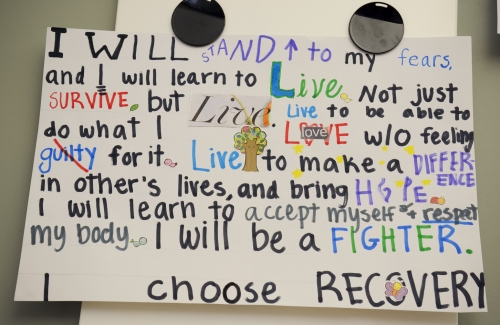 I WILL STAND ↑ to my fears,
and I will learn to Live. Not just
SURVIVE. but Live. Live to be able to
do what I LOVE love w/o feeling
guilty for it. Live to make a DIFFERENCE
in other's lives, and bring HOPE.
I will learn to accept myself + respect
my body. I will be a FIGHTER.
I choose RECOVERY